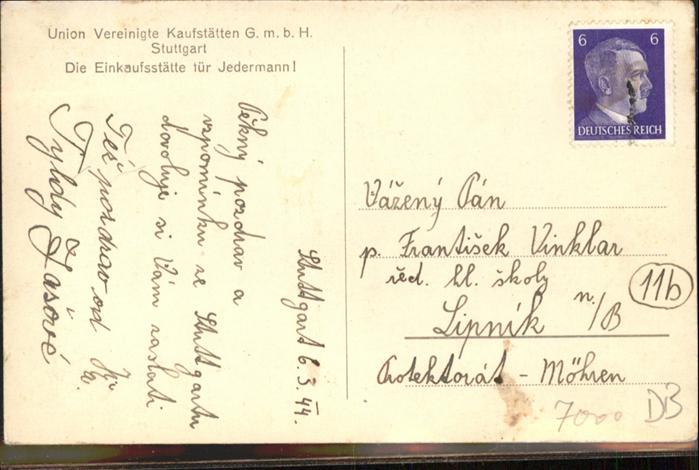 Union Vereinigte Kaufstätten G.m.b.H.
Stuttgart
Die Einkaufsstätte für Jedermann!
Stuttgart 6.3.44.
Pěkný pozdrav a
vzpomínku ze Stuttgartu
dovoluje si Vám zaslati
Též pozdrav od
Tyldy Jašové
6 6
DEUTSCHES REICH
Vážený Pán
p. František Vinklar
řed. M. školy
Lipník n/B
Protektorát - Möhren
11b
7000 DB